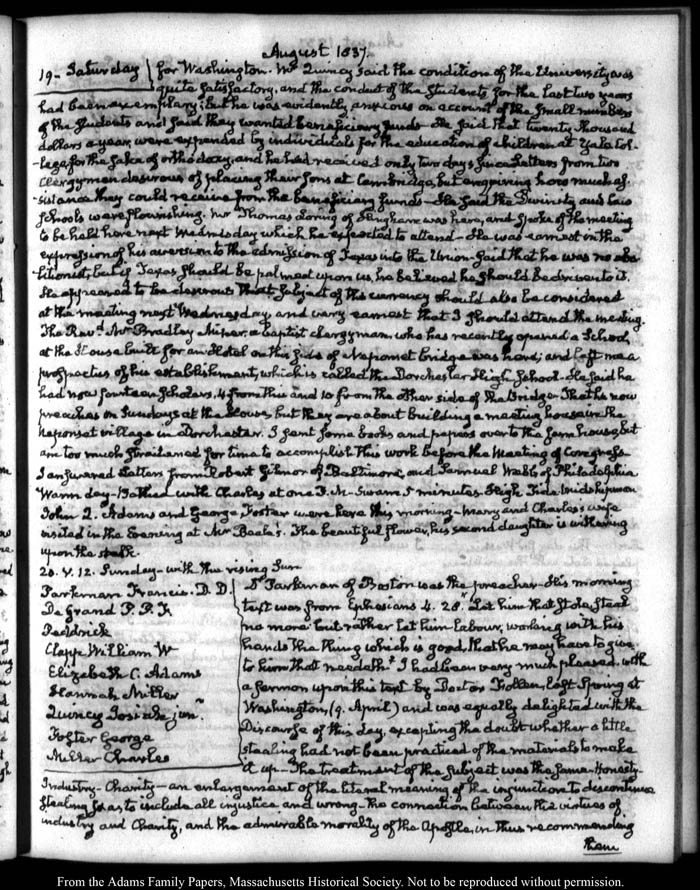 August 1837.
19. Saturday } for Washington. Mr Quincy said the condition of the University was
quite satisfactory, and the conduct of the Students for the last two years
had been exemplary; but he was evidently anxious on account of the small numbers
of the Students and said they wanted beneficiary funds. He said that twenty thousand
dollars a year were expended by individuals for the education of children at Yale Col-
-lege for the sake of orthodoxy, and he had received only two days since Letters from two
Clergymen desirous of placing their Sons at Cambridge, but enquiring how much as-
sistance they could receive from the beneficiary funds. He said the Divinity and Law
Schools were flourishing. Mr Thomas Loring of Hingham was here, and spoke of the meeting
to be held here next Wednesday which he expected to attend. He was earnest in the
expression of his aversion to the admission of Texas into the Union. Said that he was no abo-
-litionist, but if Texas should be palmed upon us, he believed he should be driven to it.
He appeared to be desirous that subject of the currency should also be considered
at the meeting next Wednesday, and very earnest that I should attend the meeting.
The Revd. Mr Bradley Miner, a baptist clergyman who has recently opened a School,
at the House built for an Hotel on this side of Neponset bridge was here; and left me a
prospectus of his establishment, which is called the Dorchester High School. He said he
had now fourteen scholars, 4 from this and 10 from the other side of the Bridge. That he now
preaches on Sundays at the House, but they are about building a meeting house in the
Neponset village in Dorchester. I sent some books and papers over to the farm house, but
am too much straitened for time to accomplish this work before the Meeting of Congress.
I answered Letters from Robert Gilmor of Baltimore, and Samuel Webb of Philadelphia
Warm day. Bathed with Charles at one P.M. Swam 5 minutes. High Tide. Midshipman
John Q. Adams and George Foster were here this morning. Mary and Charles's wife
visited in the Evening at Mr Beale's. The beautiful flower, his second daughter is withering
upon the stalk.
20. V. 12. Sunday. with the rising Sun
Parkman Francis. D.D.
De Grand P. P. F.
Peddrick
Clapp William W
Elizabeth C. Adams
Hannah Miller
Quincy Josiah junr.
Foster George
Miller Charles
Dr Parkman of Boston was the preacher. His morning
text was from Ephesians 4. 28. Let him that stole steal
no more: but rather let him labour, working with his
hands the thing which is good, that he may have to give
to him that needeth. I had been very much pleased with
a sermon upon this text by Doctor Follen, last Spring at
Washington, (9. April) and was equally delighted with the
Discourse of this day, excepting the doubt whether a little
stealing had not been practiced of the materials to make
it up. The treatment of the subject was the same. Honesty-
Industry. Charity. an enlargement of the literal meaning of the injunction to discontinue
stealing so as to include all injustice and wrong. the connection between the virtues of
industry and Charity, and the admirable morality of the Apostle, in thus recommending
them
From the Adams Family Papers, Massachusetts Historical Society. Not to be reproduced without permission.